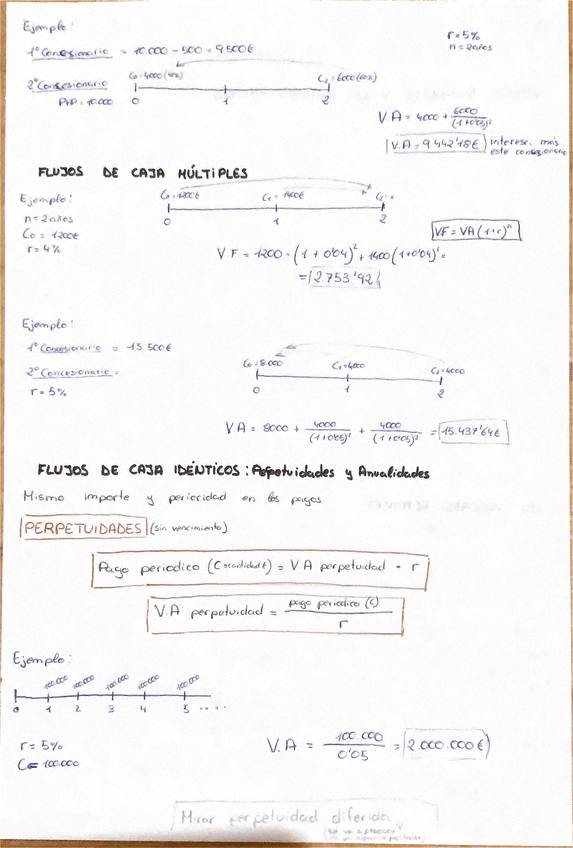 Ejemplo:
1º Concesionario = 10.000 - 500 = 9.500€
r = 5%
n = 2 años
2º Concesionario
PVP = 10.000
C₀ = 4000 (40%)
C₂ = 6000 (60%)
0 1 2
V A = 4000 + 6000 / (1+0'05)²
V.A = 9.442'18€ interesa más
este concesionario
FLUJOS DE CAJA MÚLTIPLES
Ejemplo:
n = 2 años
C₀ = 1200€
r = 4%
C₀ = 1200€ C₁ = 1400€
0 1 2
VF = VA (1+r)ⁿ
V F = 1200 · (1 + 0'04)² + 1400 (1+0'04)¹ =
= 2.753'92
Ejemplo:
1º Concesionario = 15.500€
2º Concesionario =
r = 5%
C₀ = 8000 C₁ = 4000 C₂ = 4000
0 1 2
V A = 8000 + 4000 / (1+0'05)¹ + 4000 / (1+0'05)² = 15.437'64€
FLUJOS DE CAJA IDÉNTICOS: Perpetuidades y Anualidades
Mismo importe y periocidad en los pagos
PERPETUIDADES (sin vencimiento)
Pago periodico (C = cantidad €) = V A perpetuidad · r
V.A perpetuidad = pago periodico (C) / r
Ejemplo:
100.000 100.000 100.000 100.000 100.000
0 1 2 3 4 5 ....
r = 5%
C = 100.000
V.A = 100.000 / 0'05 = 2.000.000€
Mirar perpetuidad diferida